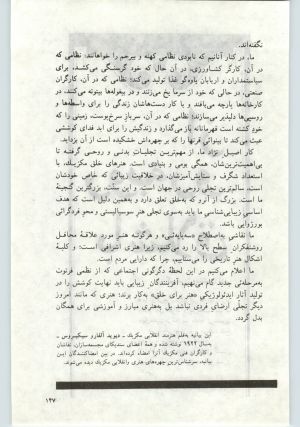 نگفته‌اند.
ما، در کنار آنانیم که نابودی نظامی کهنه و بیرحم را خواهانند: نظامی که
در آن، کارگر کشاورزی، در آن حال که خود گرسنگی می‌کشد، برای
سیاستمداران و اربابان یاوه‌گو غذا تولید می‌کند؛ نظامی که در آن، کارگران
صنعتی، در حالی که خود از سرما یخ می‌زنند و در بیغوله‌ها بیتوته می‌کنند، در
کارخانه‌ها پارچه می‌بافند و با کار دست‌هاشان زندگی را برای واسطه‌ها و
روسپی‌ها دلپذیر می‌سازند؛ نظامی که در آن، سرباز سرخ‌پوست، زمینی را که
خود کشته است قهرمانانه باز می‌گذارد و زندگیش را برای ابد فدای کوششی
عبث می‌کند تا بینوائی قرنها را که بر چهره‌اش خشکیده است از آن بزداید.
کار اصیل نژاد ما، از مهمترین تجلیات بدنی و روحی گرفته تا
بی‌اهمیت‌ترین‌شان، همگی بومی و بنیادی است. هنرهای خلق مکزیک، با
استعداد شگرف و ستایش‌آمیزشان، در خلاقیت زیبائی که خاص خودشان
است، سالم‌ترین تجلی روحی در جهان است. و این سنّت، بزرگترین گنجینهٔ
ما است. بزرگ از آنرو که به‌خلق تعلق دارد و به‌همین دلیل است که هدف
اساسی زیبایی‌شناسی ما باید به‌سوی تجلی هنر سوسیالیستی و محو فردگرائی
بورژوایی باشد.
ما نقاشی به‌اصطلاح «سه‌پایه‌ئی» و هرگونه هنر مورد علاقهٔ محافل
روشنفکران سطح بالا را رد می‌کنیم، زیرا هنری اشرافی است؛ و کلیهٔ
اشکال هنر تاریخی را می‌ستاییم، چرا که دارایی مردم است.
ما اعلام می‌کنیم در این لحظهٔ دگرگونی اجتماعی که از نظمی فرتوت
به‌مرحله‌ئی جدید گام می‌نهیم، آفرینندگان زیبایی باید نهایت کوشش را در
تولید آثار ایدئولوژیکی «هنر برای خلق» به‌کار برند: هنری که مانند امروز
دیگر تجلّی ارضای فردی نباشد. بل به‌هنری مبارز و آموزشی برای همگان
بدل گردد.
این بیانیه به‌قلم هنرمند انقلابی مکزیک - دیوید آلفارو سیکه‌ئیروس -
به‌سال ۱۹۲۲ نوشته شده و همهٔ اعضای سندیکای مجسمه‌سازان، نقاشان
و کارگران فنی مکزیک آنرا امضاء کرده‌اند. در بین امضاکنندگان این
بیانیه، سرشناس‌ترین چهره‌های هنری و انقلابی مکزیک دیده می‌شوند.
۱۴۷